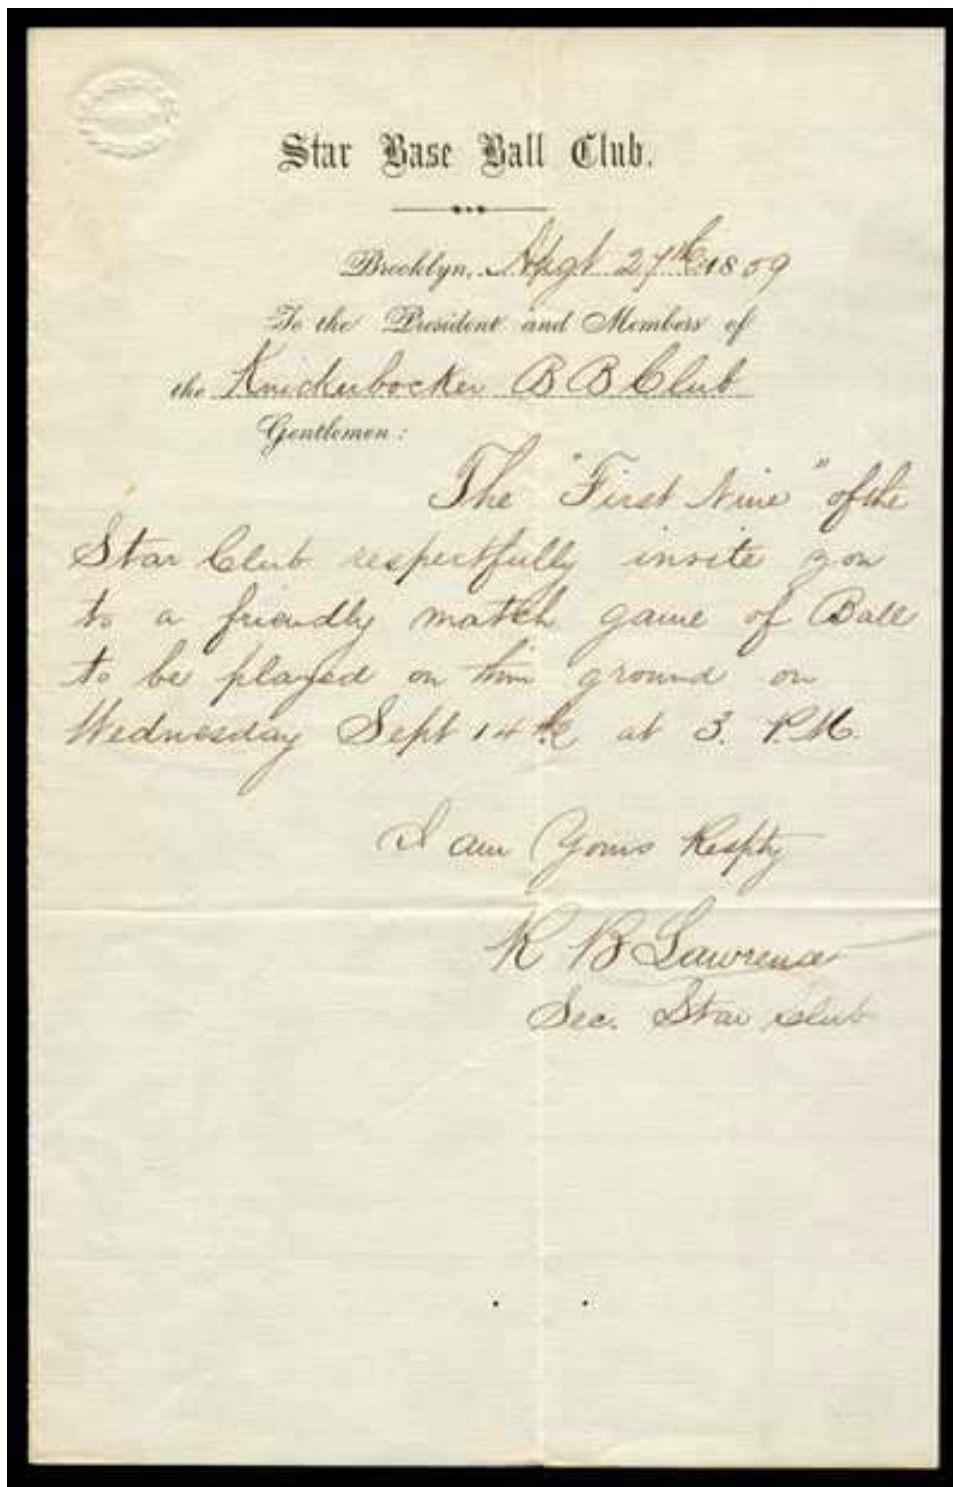 Star Base Ball Club.
Brooklyn, 27th 1859
To the President and Members of
the Knickerbocker B B Club
Gentlemen:
The "First Nine" of the
Star Club respectfully invite you
to a friendly match game of Ball
to be played on their ground on
Wednesday Sept 14th at 3. P.M.
I am Yours Respty
R B Lawrence
Sec. Star Club